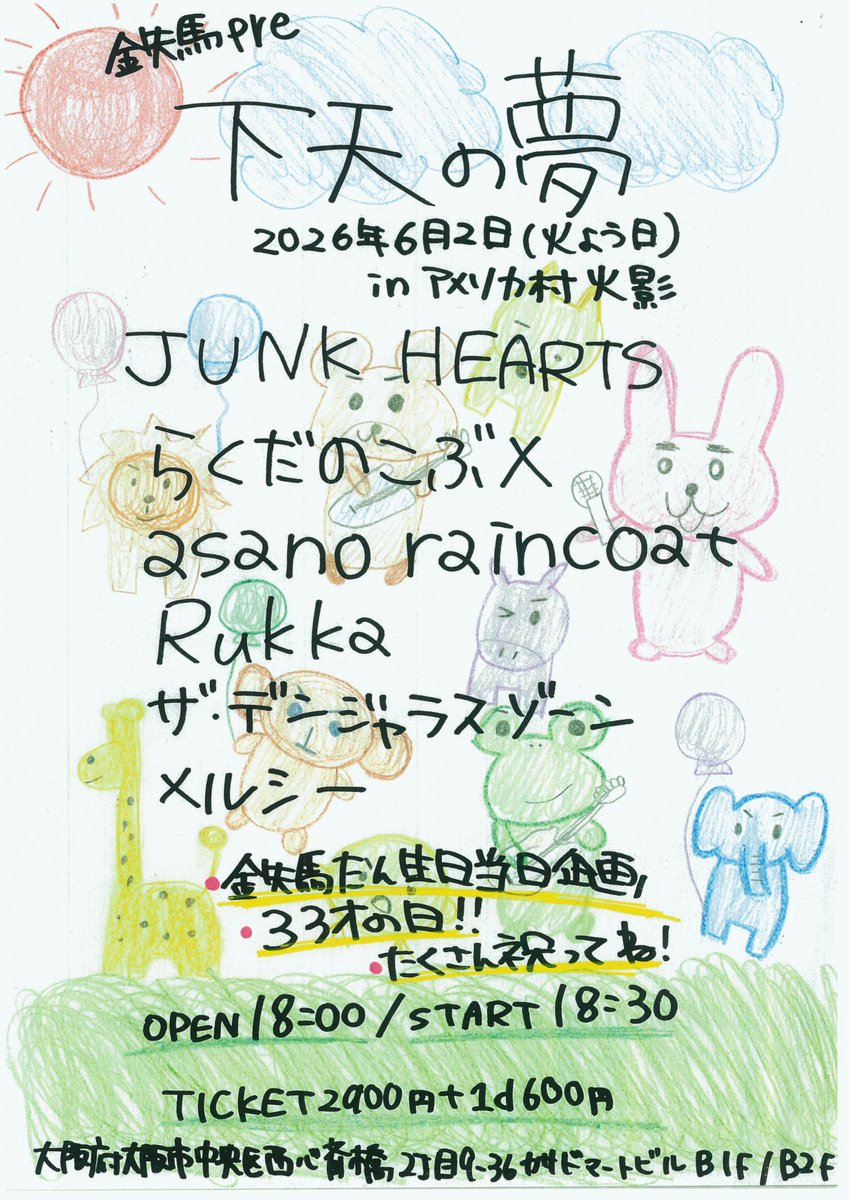 鉄馬pre
下天の夢
2026年6月2日(火よう日)
in アメリカ村 火影
JUNK HEARTS
らくだのこぶX
asano raincoat
Rukka
ザ・デンジャラスゾーン
メルシー
・鉄馬たん生日当日企画,
・33才の日!!
・たくさん祝ってね!
OPEN 18:00 / START 18:30
TICKET 2900円+1d600円
大阪府大阪市中央区西心斎橋2丁目9-36 カサドマートビル B1F/B2F